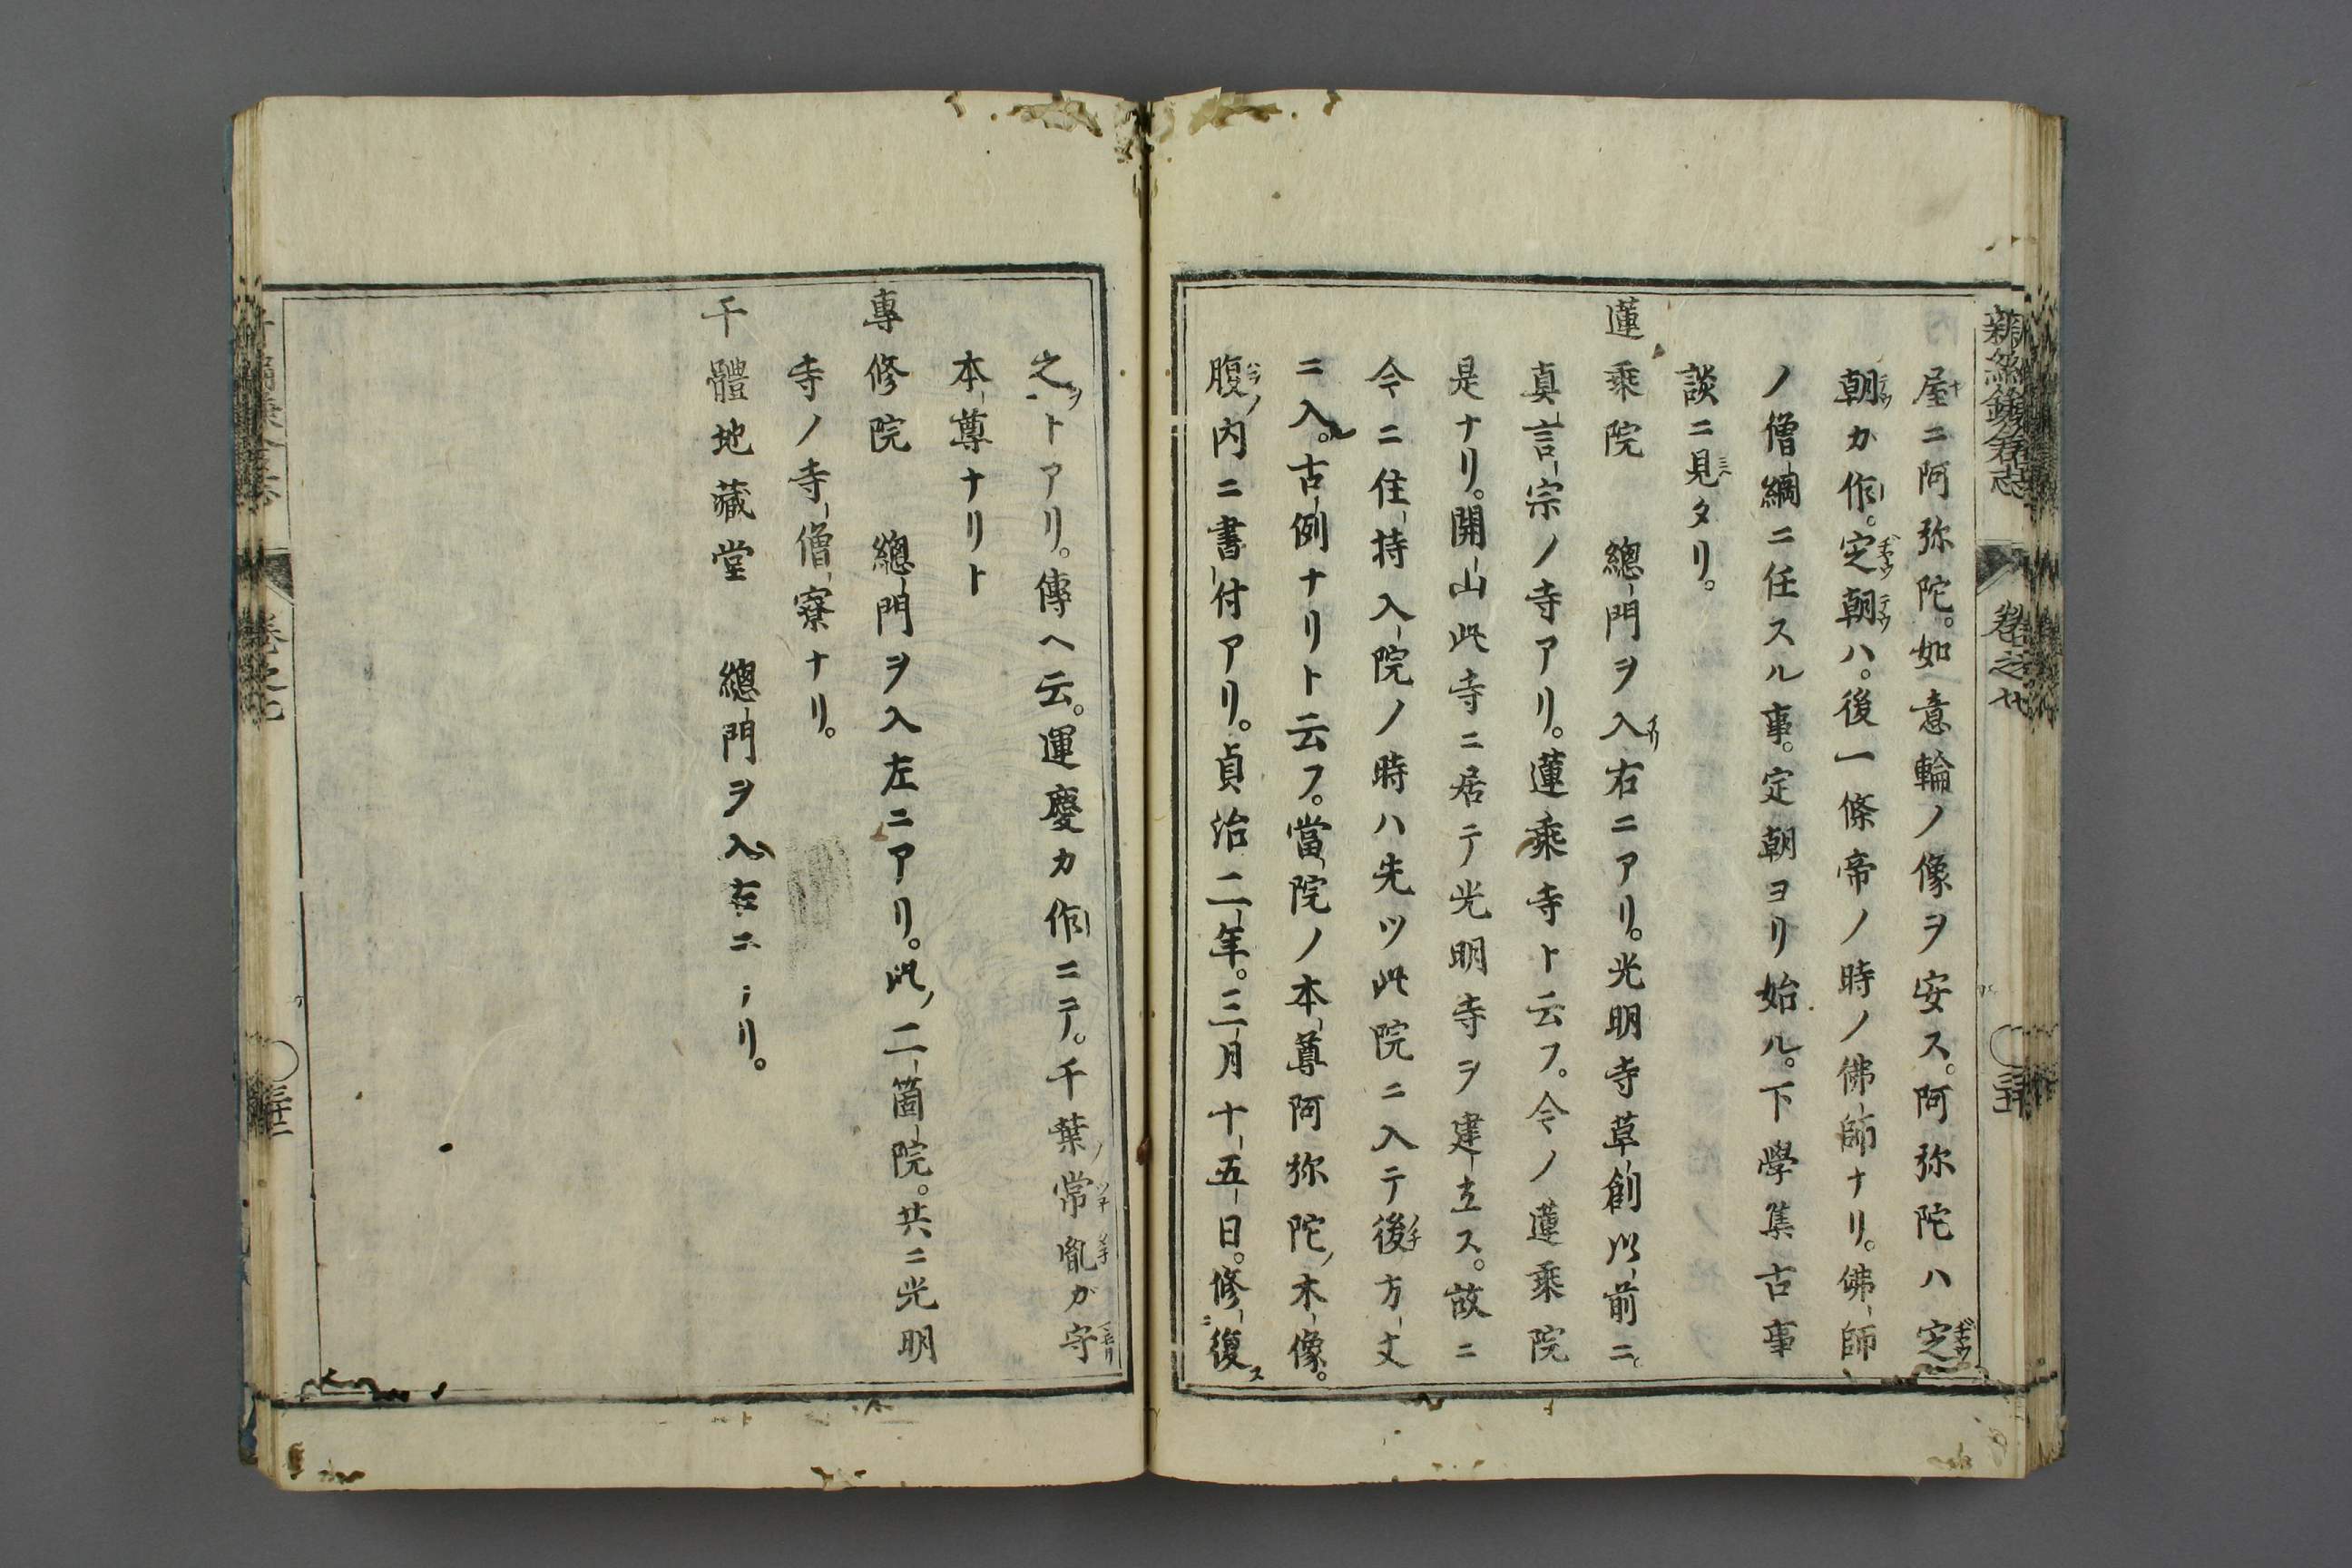 新編鎌倉志 卷之七
屋ニ阿弥陀。如意輪ノ像ヲ安ス。阿弥陀ハ定
朝カ作。定朝ハ。後一條帝ノ時ノ佛師ナリ。佛師
ノ僧綱ニ任スル事。定朝ヨリ始ル。下學集古事
談ニ見タリ。
蓮乘院 總門ヲ入右ニアリ。光明寺草創以前ニ。
真言宗ノ寺アリ。蓮乘寺ト云フ。今ノ蓮乘院
是ナリ。開山此寺ニ居テ光明寺ヲ建立ス。故ニ
今ニ住持入院ノ時ハ先ツ此院ニ入テ後方丈
ニ入。古例ナリト云フ。當院ノ本尊阿弥陀木像。
腹内ニ書付アリ。貞治二年。三月十五日。修復ス
之ヲトアリ。傳ヘ云。運慶カ作ニテ。千葉常胤カ守
本尊ナリト
專修院 總門ヲ入左ニアリ。此二箇院。共ニ光明
寺ノ寺僧寮ナリ。
千體地藏堂 總門ヲ入右ニアリ。